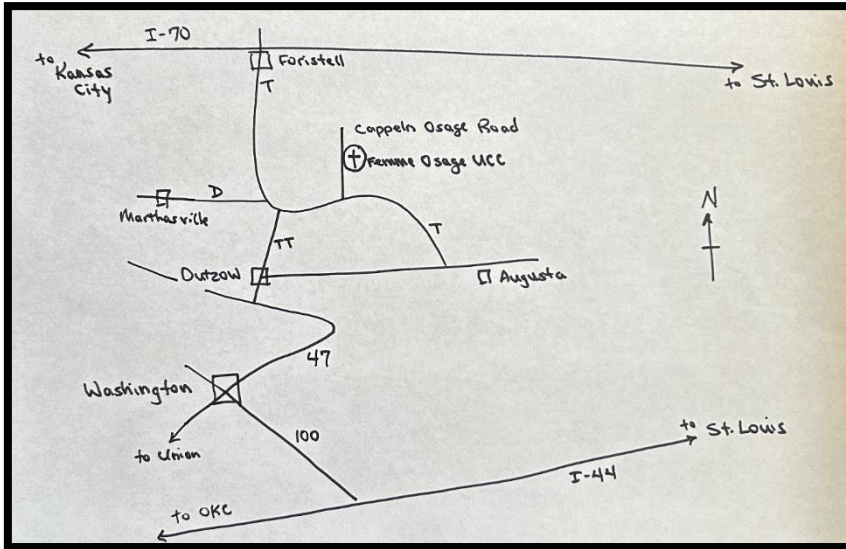 I-70
to
Kansas
City
Foristell
to St. Louis
T
Cappeln Osage Road
Femme Osage UCC
D
Marthasville
N
T
TT
Dutzow
Augusta
47
Washington
100
to Union
to St. Louis
I-44
to OKC